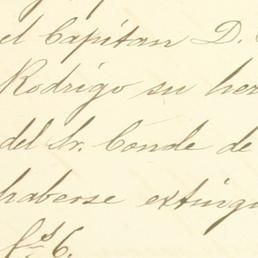 el Capitan D.
Rodrigo su her
del Sr. Conde de
haberse extingu
fs. 6.